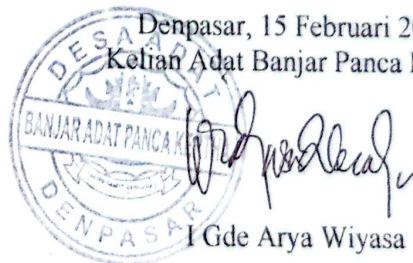 Denpasar, 15 Februari 2
Kelian Adat Banjar Panca
DESA ADAT
BANJAR ADAT PANCA
DENPASAR
I Gde Arya Wiyasa